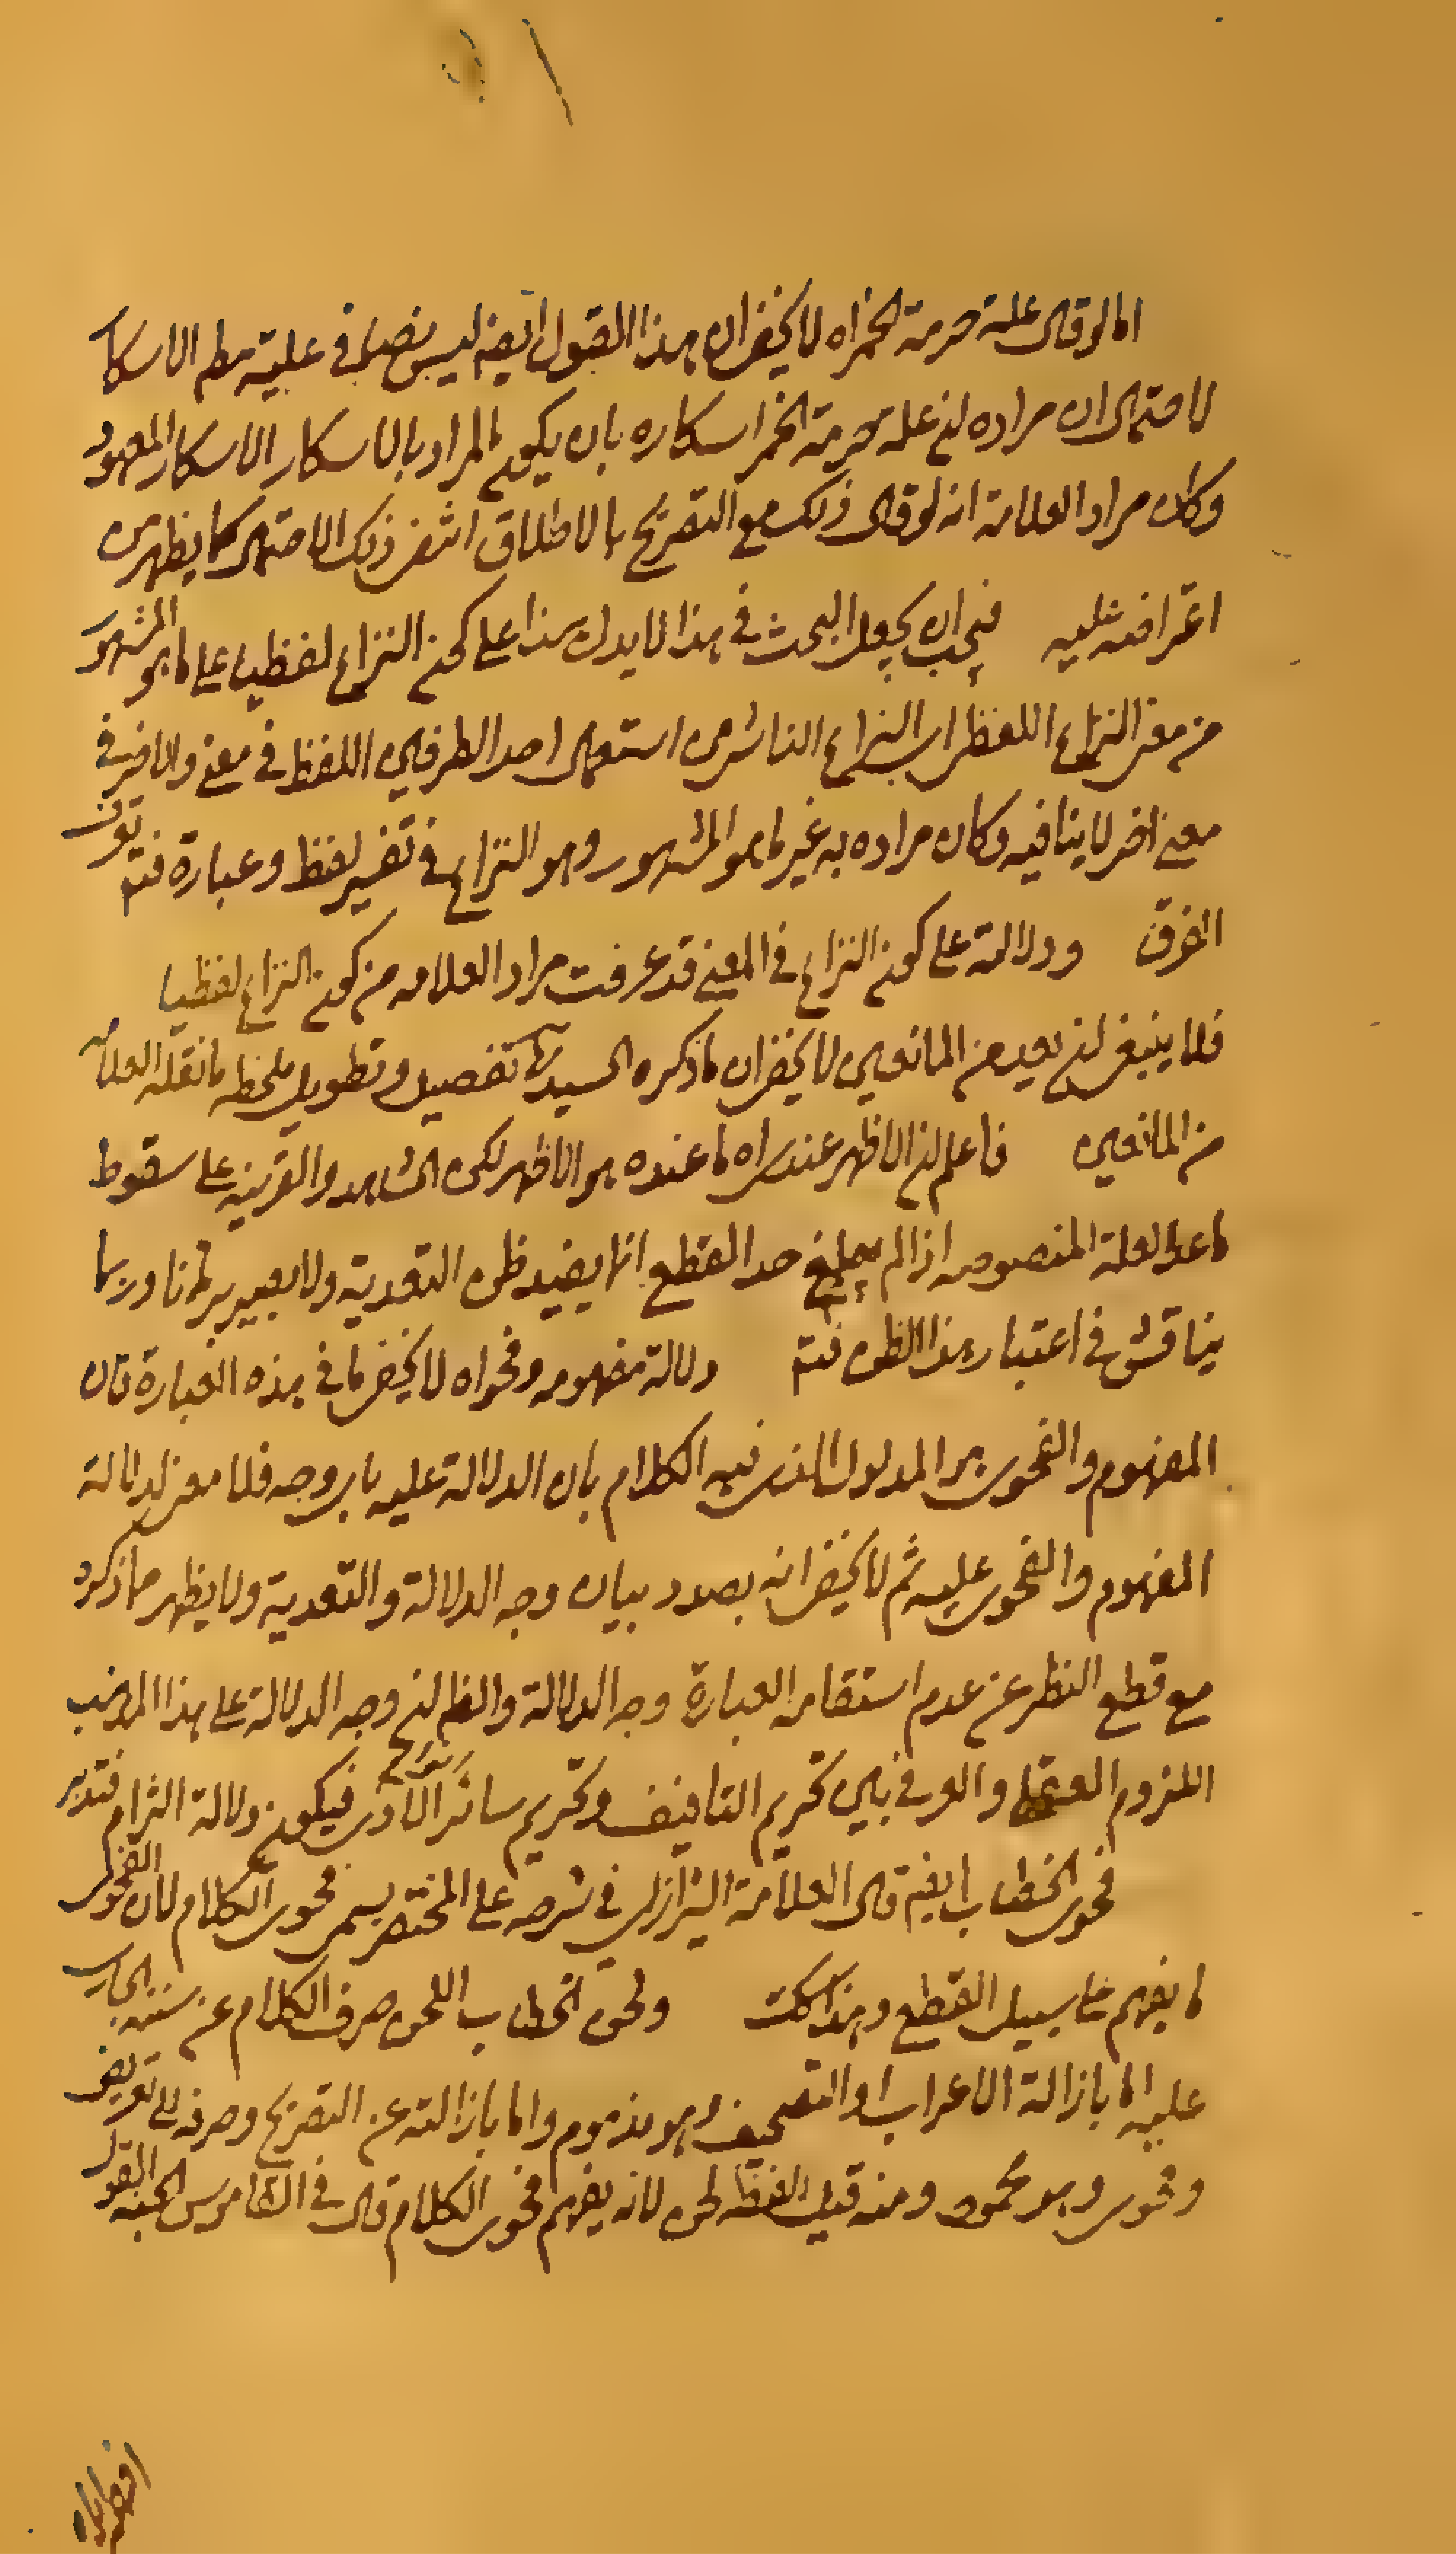 اما لو قال علة حرمة الخمر اه لا يخفى ان هذا القول ايضا ليس نصا في علية مطم الاسكا
لاحتمال ان مراده ان علة حرمة الخمر اسكاره بان يكون المراد بالاسكار الاسكار المعهود
وكان مراد العلامة انه لو قال ذلك مع التصريح بالاطلاق انتفى ذلك الاحتمال كما يظهر من
اعتراضه عليه فيجب ان يجعل البحث في هذا لا يدل هذا على كون النزاع لفظيا على ما هو المشهور
من معنى النزاع اللفظي اي النزاع الناشي من استعمال احد الطرفين اللفظ في معنى والاخر في
معنى اخر لا ينافيه وكان مراده به غير ما هو المشهور وهو النزاع في تفسير لفظ وعبارة فتم
الفرق ودلالته على كون النزاع في المعنى قد عرفت مراد العلامه من كون النزاع لفظيا
فلا ينبغي ان يعد من المانعين لا يخفى ان ما ذكره السيد تفصيل وتطويل ما نقله العلامه
من المانعين فاعلم ان الاظهر عندي اه ما عنده هو الاظهر لكن الشاهد والقرينه على سقوط
ما عدا العلة المنصوصه اذا لم يبلغ حد القطع انما يفيد ظن التعدية ولا يصير برهانا وربما
يناقش في اعتبار هذا الظن فتم دلالة مفهومه وفحواه لا يخفى ما في هذه العبارة فان
المفهوم والفحوى هو المدلول الذي فيه الكلام بان الدلالة عليه باي وجه فلا معنى لدلالة
المفهوم والفحوى عليه ثم لا يخفى انه بصدد بيان وجه الدلالة والتعدية ولا يظهر مما ذكره
مع قطع النظر عن عدم استقامة العبارة وجه الدلالة والظم ان وجه الدلالة على هذا المذهب
اللزوم العقلي والعرفي بين تحريم التافيف وتحريم سائر الاذى فيكون دلالة التزام فتدبر
فحوى الخطاب ايضا قال العلامة الشيرازي في شرحه على المختصر يسمى فحوى الكلام لان الفحوى
ما يفهم على سبيل القطع وهذا كك ولحن الخطاب اللحن صرف الكلام عن سننه الجاري
عليه اما بازالة الاعراب او التصحيف وهو مذموم واما بازالته عن التصريح وصرفه الى تعريض
وفحوى وهو محمود ومنه قيل للفطنة لحن لانه يفهم فحوى الكلام قال في القاموس لحنه القول
افهمه اياه